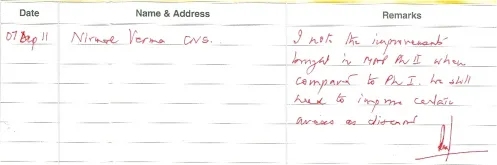 Date Name & Address Remarks
07 Sep 11 Nirmal Verma CNS. I note the improvements
brought in Ph II when
compared to Ph I. We still
need to improve certain
areas as discussed